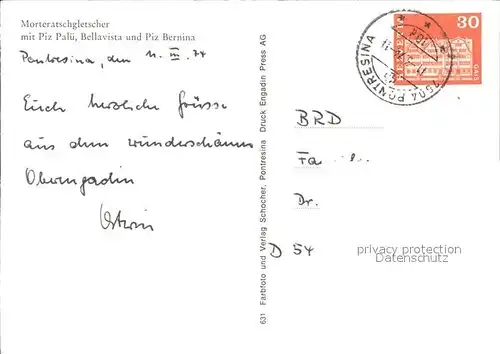 Morteratschgletscher
mit Piz Palü, Bellavista und Piz Bernina
Pontresina, den 11. III. 74
Euch herzliche Grüsse
aus dem wunderschönen
Oberengadin
631 Farbfoto und Verlag Schocher, Pontresina Druck Engadin Press AG
30
HELVETIA
GAIS
7504 PONTRESINA
BRD
Fa
Dr.
D 54
privacy protection
watermark